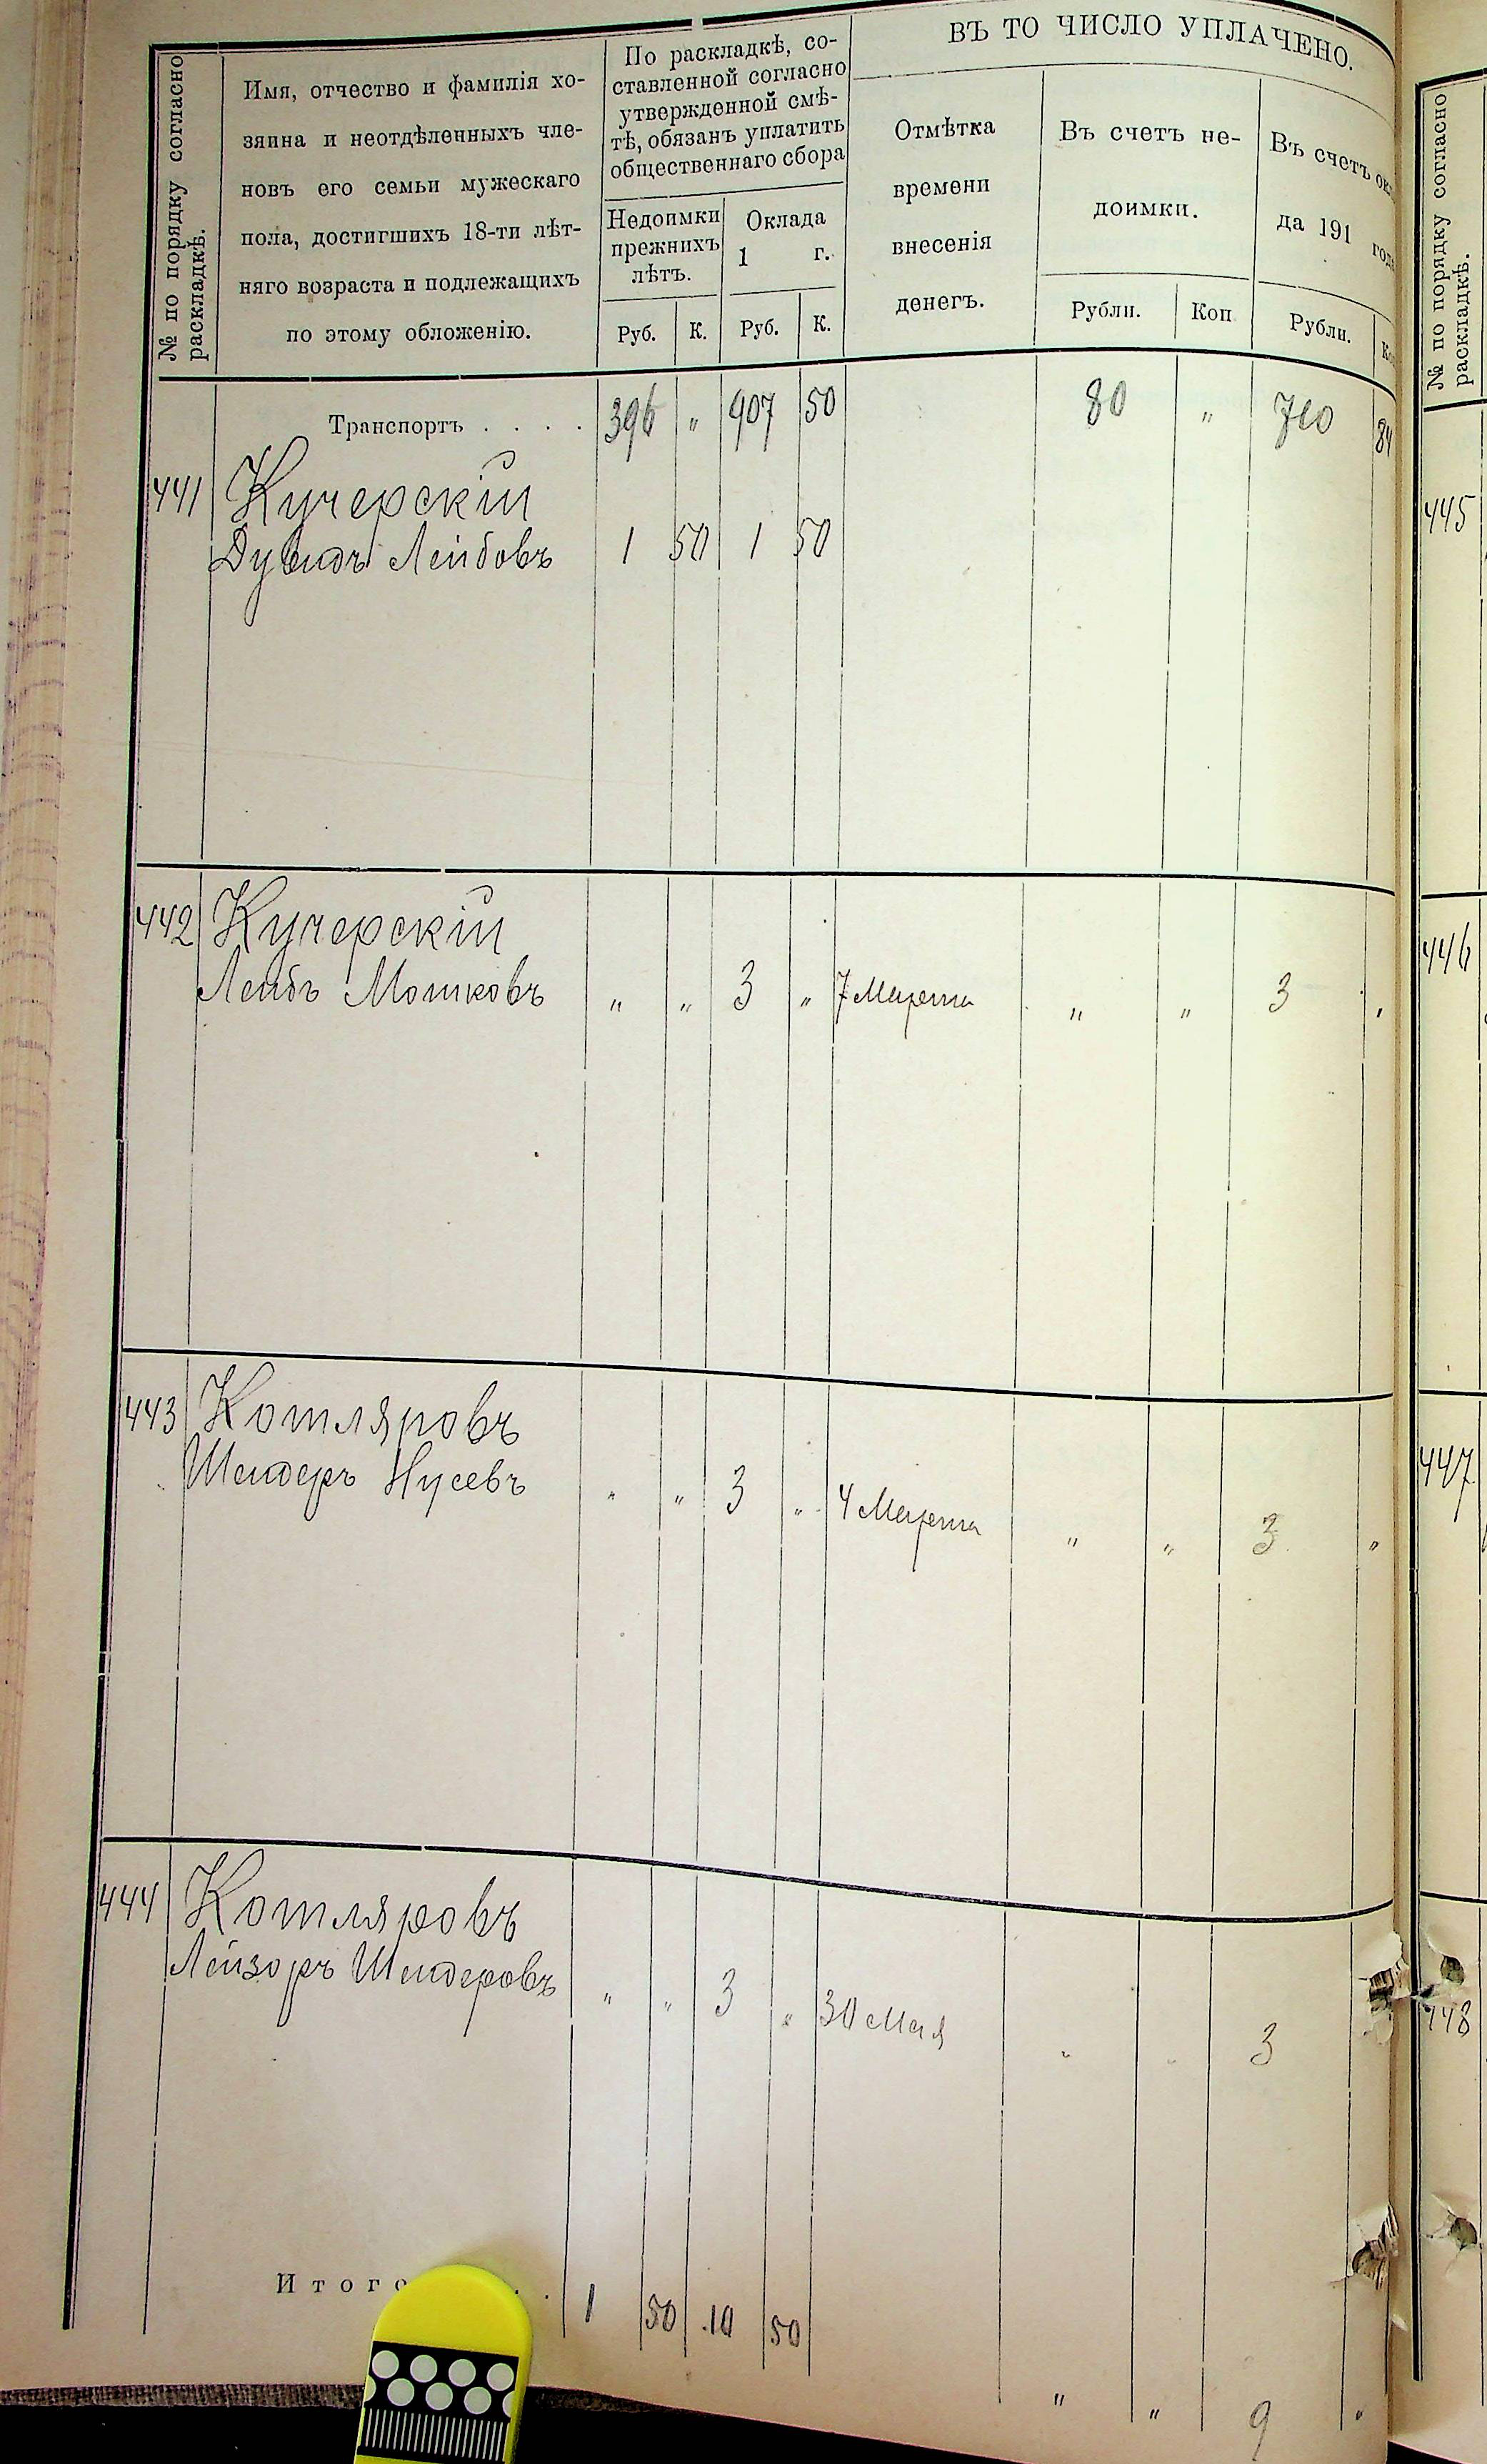 № по порядку согласно
раскладкѣ.
Имя, отчество и фамилія хо-
зяина и неотдѣленныхъ чле-
новъ его семьи мужескаго
пола, достигшихъ 18-ти лѣт-
няго возраста и подлежащихъ
по этому обложенію.
По раскладкѣ, со-
ставленной согласно
утвержденной смѣ-
тѣ, обязанъ уплатить
общественнаго сбора
Недоимки
прежнихъ
лѣтъ.
Оклада
1 г.
Руб. К. Руб. К.
ВЪ ТО ЧИСЛО УПЛАЧЕНО.
Отмѣтка
времени
внесенія
денегъ.
Въ счетъ не-
доимки.
Рубли. Коп
Въ счетъ ок
да 191 года
Рубли. Ко
Транспортъ . . . . 396 „ 907 50 80 „ 710 84
441 Кучерскій
Дувидъ Лейбовъ 1 50 1 50
442 Кучерскій
Лейбъ Мошковъ „ „ 3 „ 7 Марта „ „ 3 „
443 Котляровъ
Шендеръ Нусевъ „ „ 3 „ 4 Марта „ „ 3 „
444 Котляровъ
Лейзоръ Шендеровъ „ „ 3 „ 30 Мая „ „ 3
Итого . . 1 50 10 50
„ „ 9 „
№ по порядку согласно
раскладкѣ.
445
446
447
448